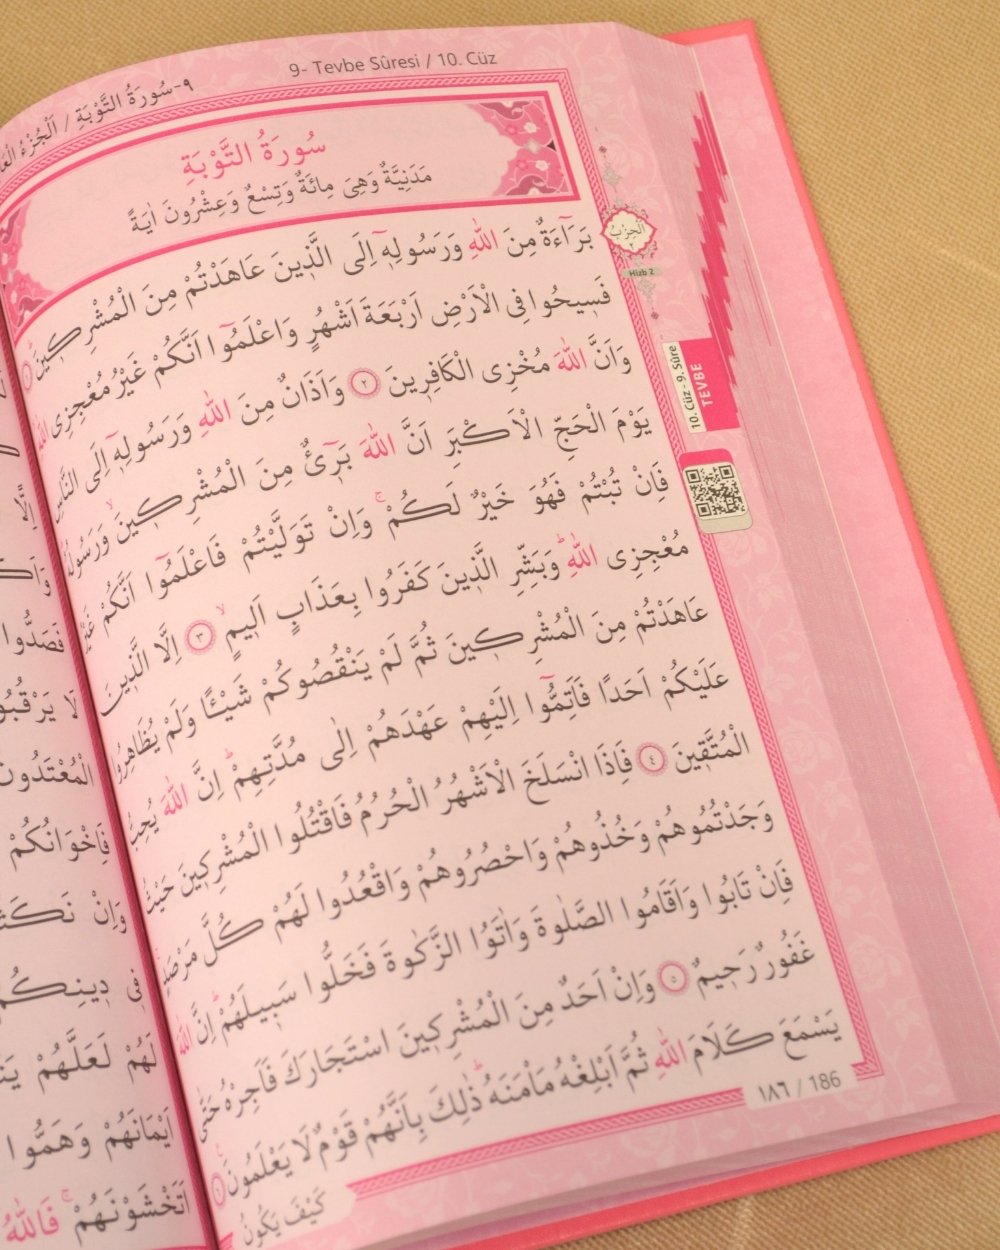 9- Tevbe Sûresi / 10. Cüz
٩-سُورَةُ التَّوْبَةِ / اَلْجُزْءُ
سُورَةُ التَّوْبَةِ
مَدَنِيَّةٌ وَهِيَ مِائَةٌ وَتِسْعٌ وَعِشْرُونَ اٰيَةً
بَرَٓاءَةٌ مِنَ اللّٰهِ وَرَسُولِه۪ٓ اِلَى الَّذ۪ينَ عَاهَدْتُمْ مِنَ الْمُشْرِك۪ينَۜ ﴿١﴾
فَس۪يحُوا فِي الْاَرْضِ اَرْبَعَةَ اَشْهُرٍ وَاعْلَمُٓوا اَنَّكُمْ غَيْرُ مُعْجِزِي اللّٰهِ
وَاَنَّ اللّٰهَ مُخْزِي الْكَافِر۪ينَ ﴿٢﴾ وَاَذَانٌ مِنَ اللّٰهِ وَرَسُولِه۪ٓ اِلَى النَّاسِ
يَوْمَ الْحَجِّ الْاَكْبَرِ اَنَّ اللّٰهَ بَر۪ٓيءٌ مِنَ الْمُشْرِك۪ينَۙ وَرَسُولُهُ
فَاِنْ تُبْتُمْ فَهُوَ خَيْرٌ لَكُمْۚ وَاِنْ تَوَلَّيْتُمْ فَاعْلَمُٓوا اَنَّكُمْ غَيْرُ
مُعْجِزِي اللّٰهِۜ وَبَشِّرِ الَّذ۪ينَ كَفَرُوا بِعَذَابٍ اَل۪يمٍۙ ﴿٣﴾ اِلَّا الَّذ۪ينَ
عَاهَدْتُمْ مِنَ الْمُشْرِك۪ينَ ثُمَّ لَمْ يَنْقُصُوكُمْ شَيْـًٔا وَلَمْ يُظَاهِرُوا
عَلَيْكُمْ اَحَدًا فَاَتِمُّٓوا اِلَيْهِمْ عَهْدَهُمْ اِلٰى مُدَّتِهِمْۜ اِنَّ اللّٰهَ يُحِبُّ
الْمُتَّق۪ينَ ﴿٤﴾ فَاِذَا انْسَلَخَ الْاَشْهُرُ الْحُرُمُ فَاقْتُلُوا الْمُشْرِك۪ينَ حَيْثُ
وَجَدْتُمُوهُمْ وَخُذُوهُمْ وَاحْصُرُوهُمْ وَاقْعُدُوا لَهُمْ كُلَّ مَرْصَدٍ
فَاِنْ تَابُوا وَاَقَامُوا الصَّلٰوةَ وَاٰتَوُا الزَّكٰوةَ فَخَلُّوا سَب۪يلَهُمْۜ اِنَّ اللّٰهَ
غَفُورٌ رَح۪يمٌ ﴿٥﴾ وَاِنْ اَحَدٌ مِنَ الْمُشْرِك۪ينَ اسْتَجَارَكَ فَاَجِرْهُ حَتّٰى
يَسْمَعَ كَلَامَ اللّٰهِ ثُمَّ اَبْلِغْهُ مَأْمَنَهُۜ ذٰلِكَ بِاَنَّهُمْ قَوْمٌ لَا يَعْلَمُونَ ﴿٦﴾
كَيْفَ يَكُونُ
١٨٦ / 186
اَلْحِزْبُ
٢
Hizb 2
10. Cüz - 9. Sûre
TEVBE
اِلَّا
فَصَدُّوا
لَا يَرْقُبُو
الْمُعْتَدُونَ
فَاِخْوَانُكُمْ
وَاِنْ نَكَثُ
ف۪ي د۪ينِكُمْ
لَهُمْ لَعَلَّهُمْ يَنْ
اَيْمَانَهُمْ وَهَمُّوا
اَتَخْشَوْنَهُمْۚ فَاللّٰهُ